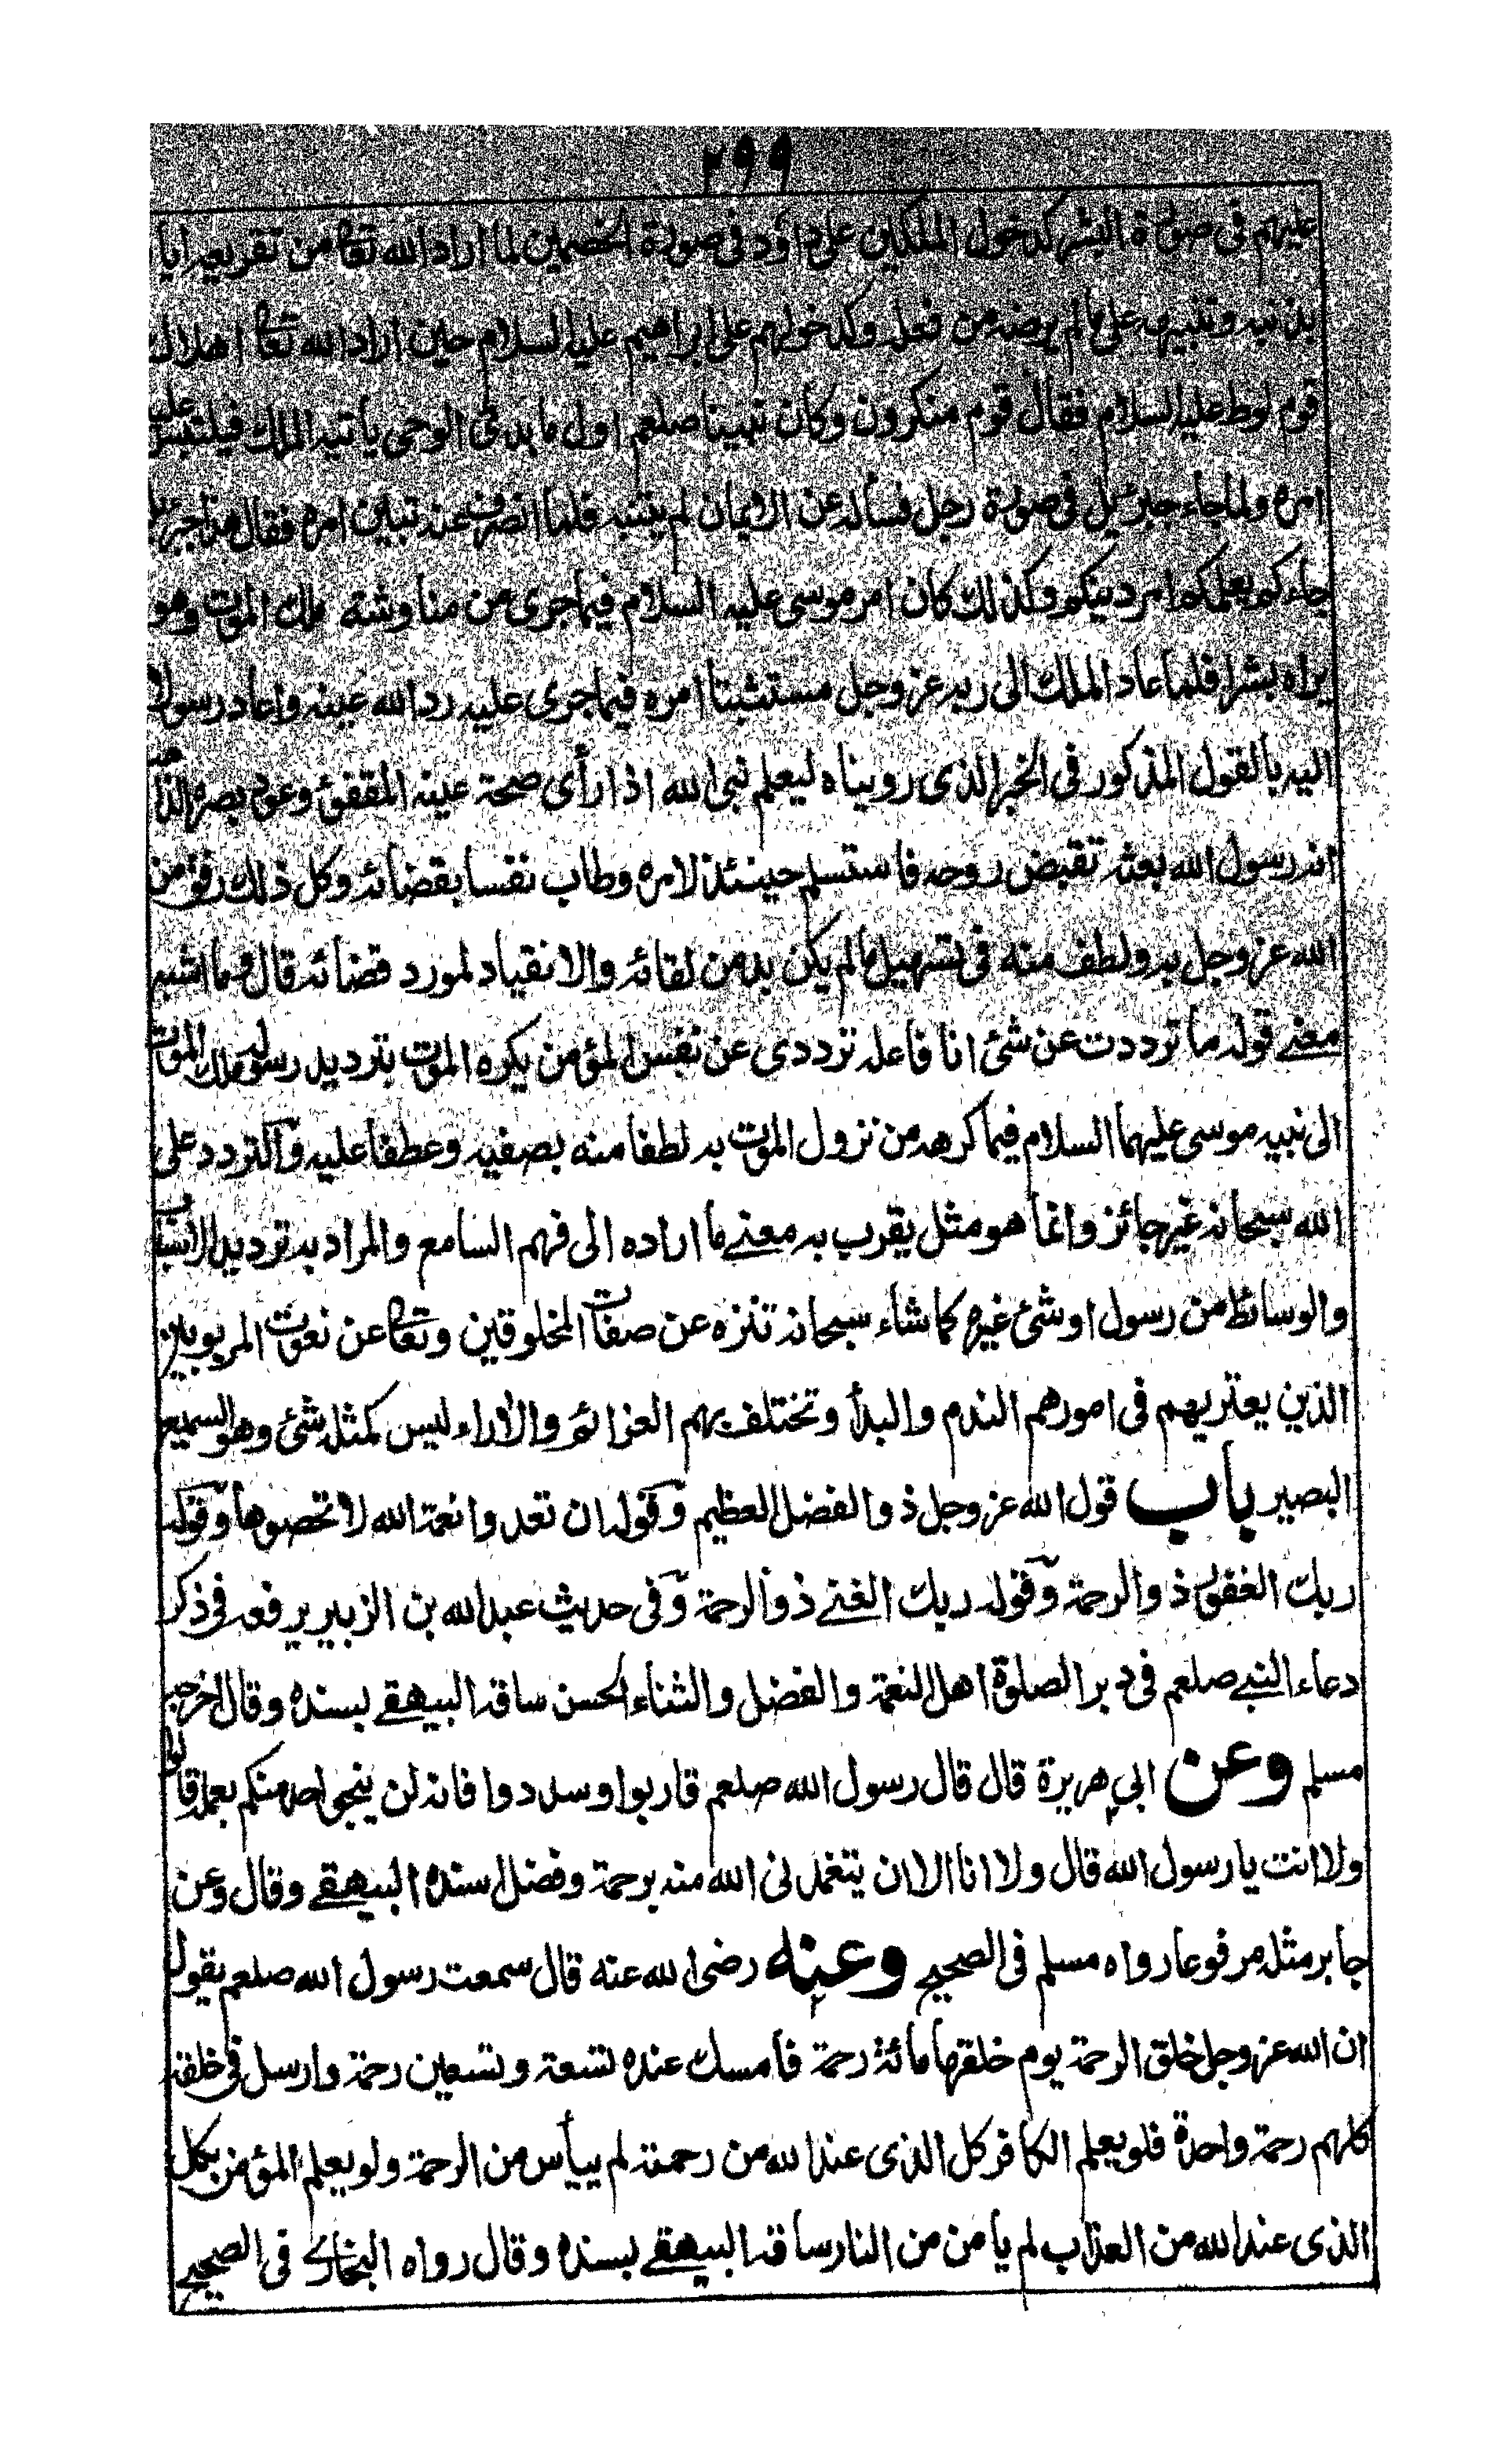 ٢٩٩
عليهم فى صورة البشر كدخول الملكين على داؤد فى صورة الخصمين لما اراد الله تعالى من تقريعه اياه
بذنبه وتنبيهه على ما لم يرضه من فعله وكدخولهم على ابراهيم عليه السلام حين اراد الله تعالى اهلاك
قوم لوط عليه السلام فقال قوم منكرون وكان نبينا صلعم اول ما بدئ الوحى يأتيه الملك فيلتبس عليه
امره ولما جاء جبرئيل فى صورة رجل فسأله عن الايمان لم يتبينه فلما انصرف عنه تبين امره فقال هذا جبرئيل
جاءكم يعلمكم امر دينكم وكذلك كان امر موسى عليه السلام فيما جرى من مناوشة ملك الموت وهو
يراه بشرا فلما عاد الملك الى ربه عز وجل مستثبتا امره فيما جرى عليه رد الله عينه واعاد رسولا
اليه بالقول المذكور فى الخبر الذى رويناه ليعلم نبى الله اذا رأى صحة عينه المفقئ وعود بصره الذاهب
انه رسول الله بعثه تقبض روحه فاستسلم حينئذ لامره وطاب نفسا بقضائه وكل ذلك رفق من
الله عز وجل به ولطف منه فى تسهيل ما لم يكن بد من لقائه والانقياد لمورد قضائه قال وما اشبه
معنے قوله ما ترددت عن شئ انا فاعله ترددى عن نفس المؤمن يكره الموت بترديد رسوله ملك الموت
الى نبيه موسى عليهما السلام فيما كرهه من نزول الموت به لطفا منه بصفيه وعطفا عليه والتردد على
الله سبحانه غير جائز وانما هو مثل يقرب به معنے ما اراده الى فهم السامع والمراد به ترديد الاسباب
والوسائط من رسول او شئ غيره كما شاء سبحانه تنزه عن صفات المخلوقين وتعالى عن نعوت المربوبين
الذين يعتريهم فى امورهم الندم والبدأ وتختلف بهم العزائم والأراء ليس كمثله شئ وهو السميع
البصير باب قول الله عز وجل ذو الفضل العظيم وقوله ان تعدوا نعمة الله لا تحصوها وقوله
ربك الغفور ذو الرحمة وقوله ربك الغنے ذو الرحمة وفى حديث عبد الله بن الزبير يرفعه فى ذكر
دعاء النبے صلعم فى دبر الصلوة اهل النعمة والفضل والثناء الحسن ساقه البيهقے بسنده وقال اخرجه
مسلم وعن ابى هريرة قال قال رسول الله صلعم قاربوا وسددوا فانه لن ينجى احد منكم بعمله قالوا
ولا انت يا رسول الله قال ولا انا الا ان يتغمدنى الله منه برحمة وفضل اسنده البيهقے وقال وعن
جابر مثله مرفوعا رواه مسلم فى الصحيح وعنه رضى الله عنه قال سمعت رسول الله صلعم يقول
ان الله عز وجل خلق الرحمة يوم خلقها مائة رحمة فأمسك عنده تسعة وتسعين رحمة وارسل فى خلقه
كلهم رحمة واحدة فلو يعلم الكافر كل الذى عند الله من رحمته لم ييأس من الرحمة ولو يعلم المؤمن بكل
الذى عند الله من العذاب لم يأمن من النار ساقه البيهقے بسنده وقال رواه البخارى فى الصحيح